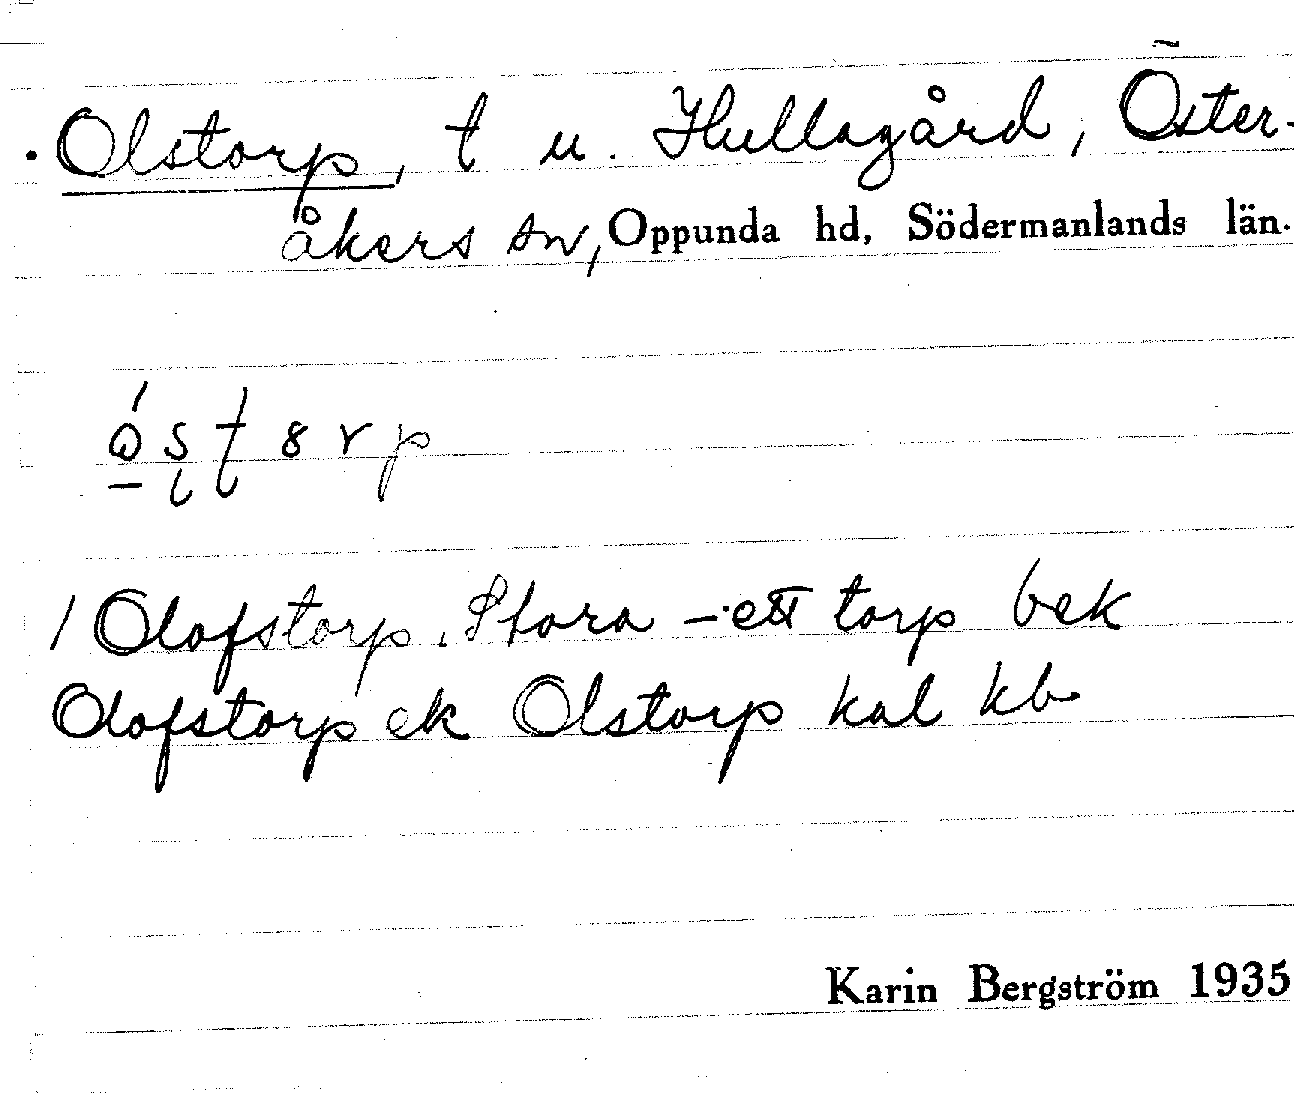 Olstorp, t u. Hullagård, Öster-
åkers sn, Oppunda hd, Södermanlands län.
1 Olofstorp. Stora – ett torp bek
Olofstorp ek Olstorp kal kb
Karin Bergström 1935